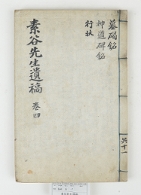 墓碣銘
神道碑銘
行狀
素谷先生遺稿 卷四
共十一